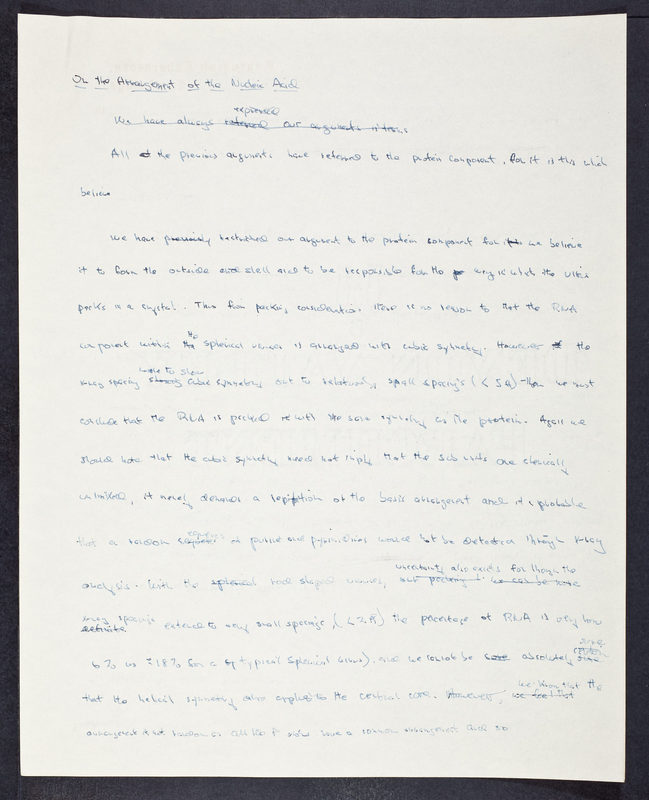 On the Arrangement of the Nucleic Acid
expressed
We have always referred our arguments in terms
All of the previous arguments have referred to the protein component, for it is this which
believe
We have previously restricted our argument to the protein component for it is we believe
it to form the outside shell and to be responsible for the way in which the virus
packs in a crystal. Thus from packing considerations there is no reason to that the RNA
the
component within the spherical viruses is arranged with cubic symmetry. However the
were to show
x-ray spacing showing cubic symmetry out to relatively small spacings (< 5Å) then we must
conclude that the RNA is packed with the same symmetry as the protein. Again we
should note that the cubic symmetry need not imply that the sub units are chemically
identical, it merely demands a repetition of the basic arrangement and it is probable
that a random sequence of purine and pyrimidines would not be detected through x-ray
uncertainty also exists for though the
analysis. With the spherical rod shaped viruses, our packing we can be more
x-ray spacings extend to very small spacings, (< 2Å) the percentage of RNA is very low
definite
sure
6% vs ≈18% for a typical spherical virus) and we cannot be absolutely
we know that the
that the helical symmetry also applies to the central core. However, we feel that
arrangement is not random as all have a common arrangement and so